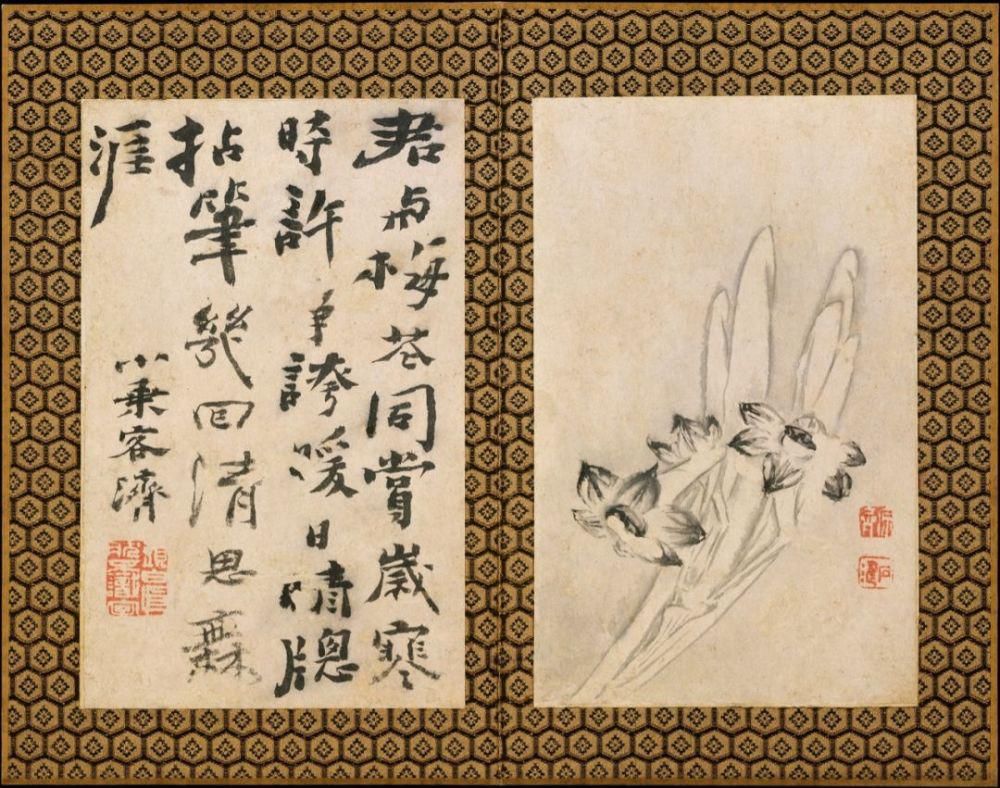 君与梅花同賞歲寒
時許爭誇暖日晴牕
拈筆幾回清思橆
涯
小乘客濟